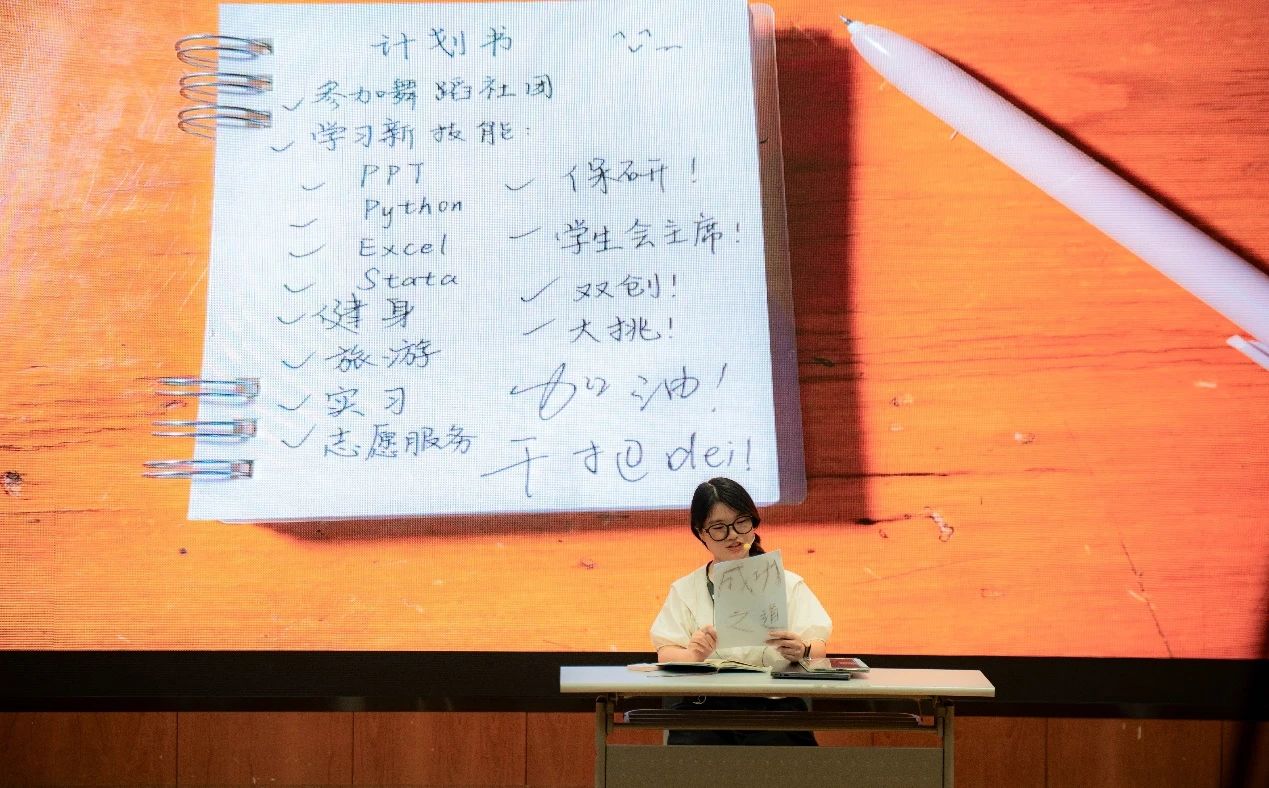 计划书 ^◡^
✓ 参加舞蹈社团
✓ 学习新技能:
✓ PPT
✓ Python
✓ Excel
✓ Stata
✓ 健身
✓ 旅游
✓ 实习
✓ 志愿服务
✓ 保研!
✓ 学生会主席!
✓ 双创!
✓ 大挑!
加油!
干把dei!
成功
之道